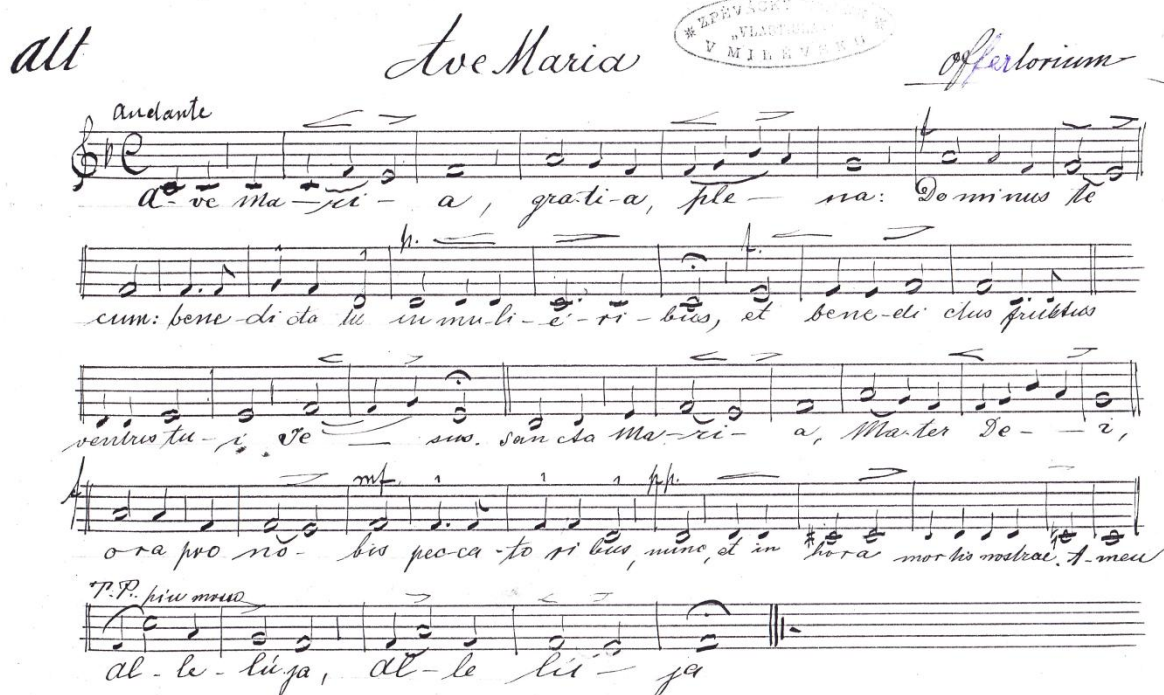 Alt Ave Maria Offertorium
ZPĚVÁCKÝ
V MILEVSKU
Andante
A-ve Ma-ri-a, gra-ti-a, ple-na: Do mi nus te
p. f.
cum: bene-di cta tu in mu-li-e-ri-bus, et bene-di ctus fruktus
ventris tu-i, Je-sus. San cta Ma-ri-a, Ma-ter De-i,
f mf. pp.
o ra pro no-bis pec-ca-to ri bus, nunc, et in hora mor tis nostrae. A-men
P.P. piu mosso
al-le-lú ja, al-le lú-ja